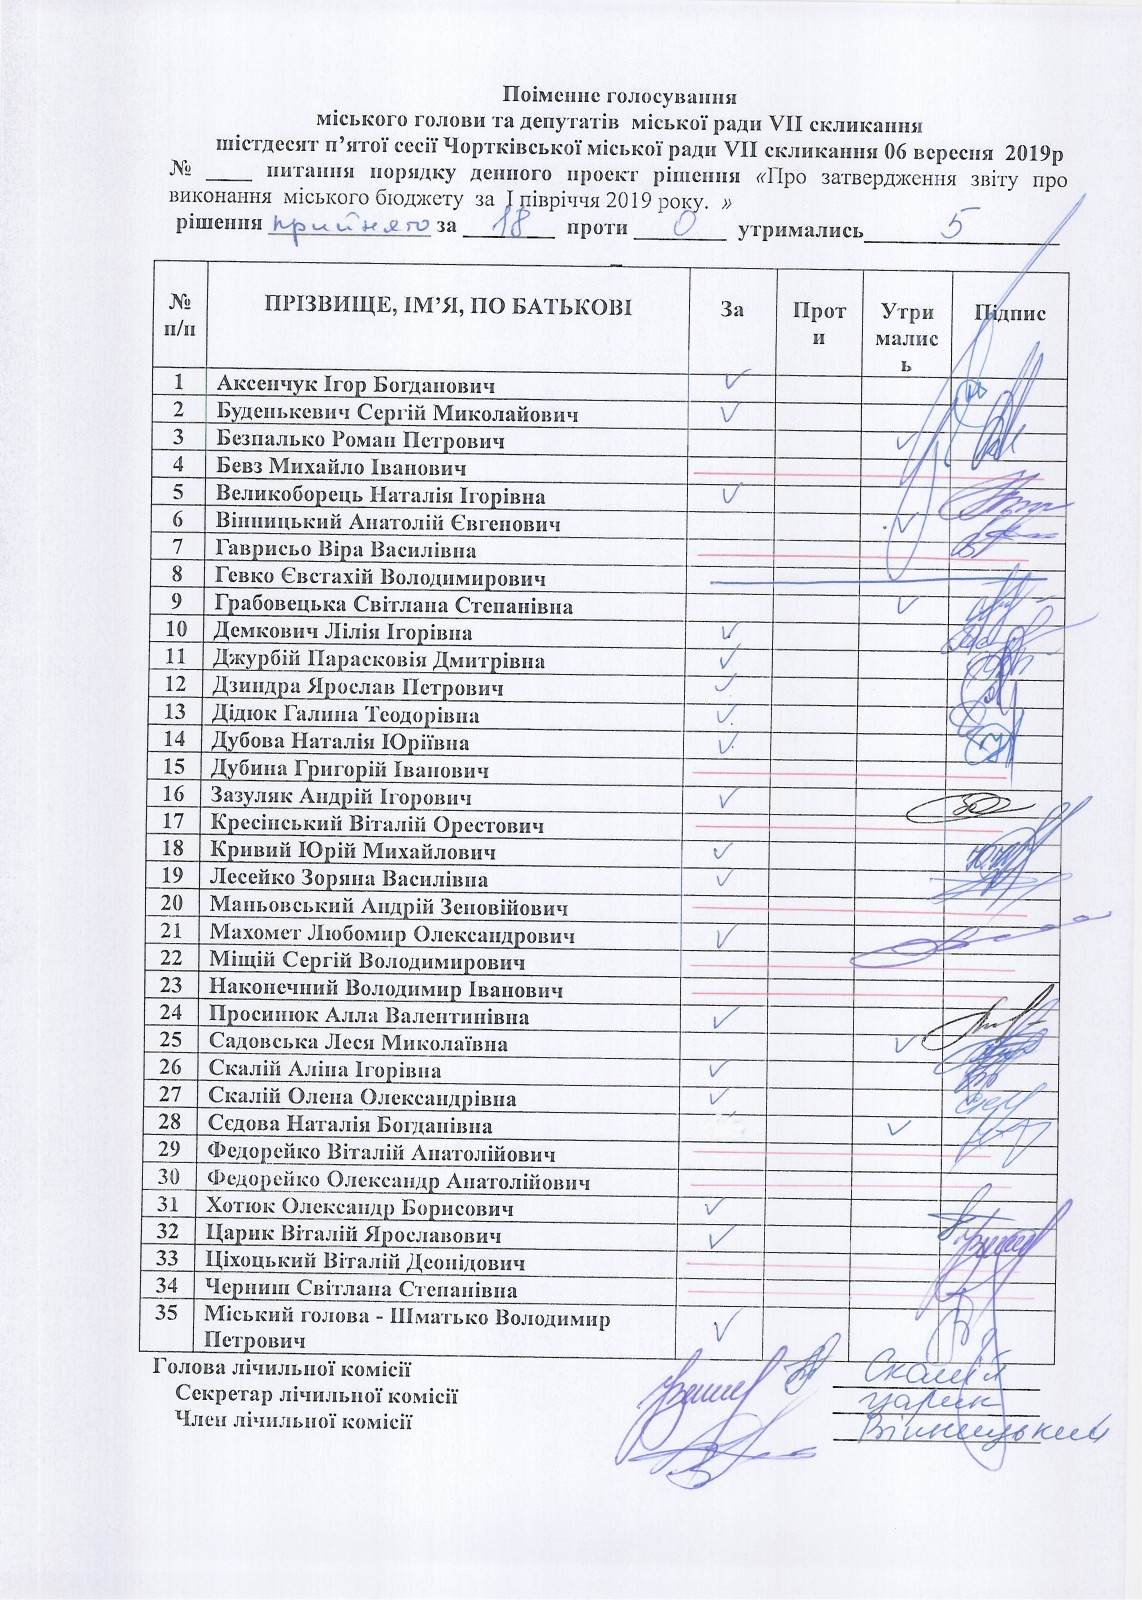 Поіменне голосування
міського голови та депутатів міської ради VII скликання
шістдесят п’ятої сесії Чортківської міської ради VII скликання 06 вересня 2019р
№ ____ питання порядку денного проект рішення «Про затвердження звіту про
виконання міського бюджету за І півріччя 2019 року. »
рішення прийнято за 18 проти 0 утримались 5
№ п/п ПРІЗВИЩЕ, ІМ’Я, ПО БАТЬКОВІ За Проти Утрималисьь Підпис
1 Аксенчук Ігор Богданович ✓
2 Буденькевич Сергій Миколайович ✓
3 Безпалько Роман Петрович ✓
4 Бевз Михайло Іванович
5 Великоборець Наталія Ігорівна ✓
6 Вінницький Анатолій Євгенович ✓
7 Гаврисьо Віра Василівна
8 Гевко Євстахій Володимирович
9 Грабовецька Світлана Степанівна ✓
10 Демкович Лілія Ігорівна ✓
11 Джурбій Парасковія Дмитрівна ✓
12 Дзиндра Ярослав Петрович ✓
13 Дідюк Галина Теодорівна ✓
14 Дубова Наталія Юріївна ✓
15 Дубина Григорій Іванович
16 Зазуляк Андрій Ігорович ✓
17 Кресінський Віталій Орестович
18 Кривий Юрій Михайлович ✓
19 Лесейко Зоряна Василівна ✓
20 Маньовський Андрій Зеновійович
21 Махомет Любомир Олександрович ✓
22 Міщій Сергій Володимирович
23 Наконечний Володимир Іванович
24 Просинюк Алла Валентинівна ✓
25 Садовська Леся Миколаївна ✓
26 Скалій Аліна Ігорівна ✓
27 Скалій Олена Олександрівна ✓
28 Сєдова Наталія Богданівна ✓
29 Федорейко Віталій Анатолійович
30 Федорейко Олександр Анатолійович
31 Хотюк Олександр Борисович ✓
32 Царик Віталій Ярославович ✓
33 Ціхоцький Віталій Деонідович
34 Черниш Світлана Степанівна
35 Міський голова - Шматько Володимир
Петрович ✓
Голова лічильної комісії Скалій
Секретар лічильної комісії Царик
Член лічильної комісії Вінницький